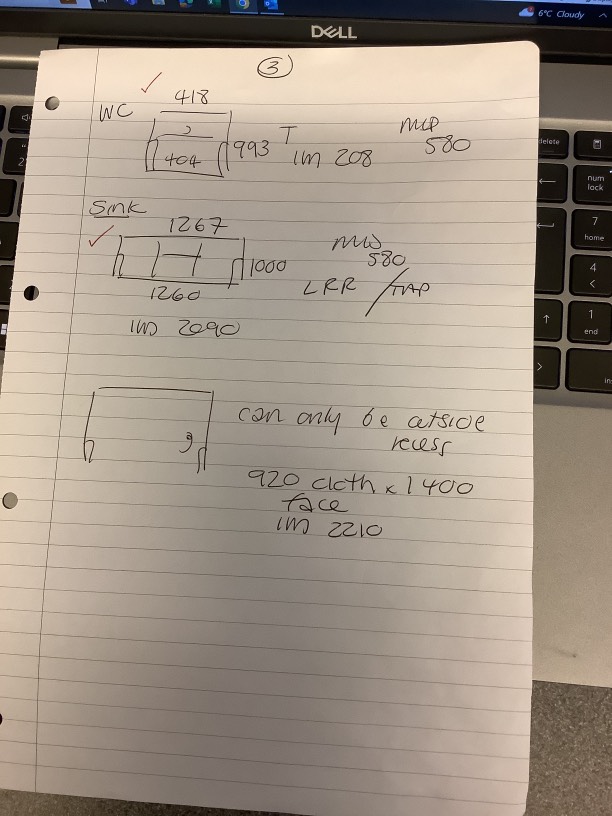 6°C Cloudy
DELL
3
WC
418
404
993 T
1M 208
580
Sink
1267
1260
1000
580
LRR / TAP
1M 2090
can only be outside
recess
920 cloth x 1400
face
1M 2210
delete
num
lock
7
home
4
1
end